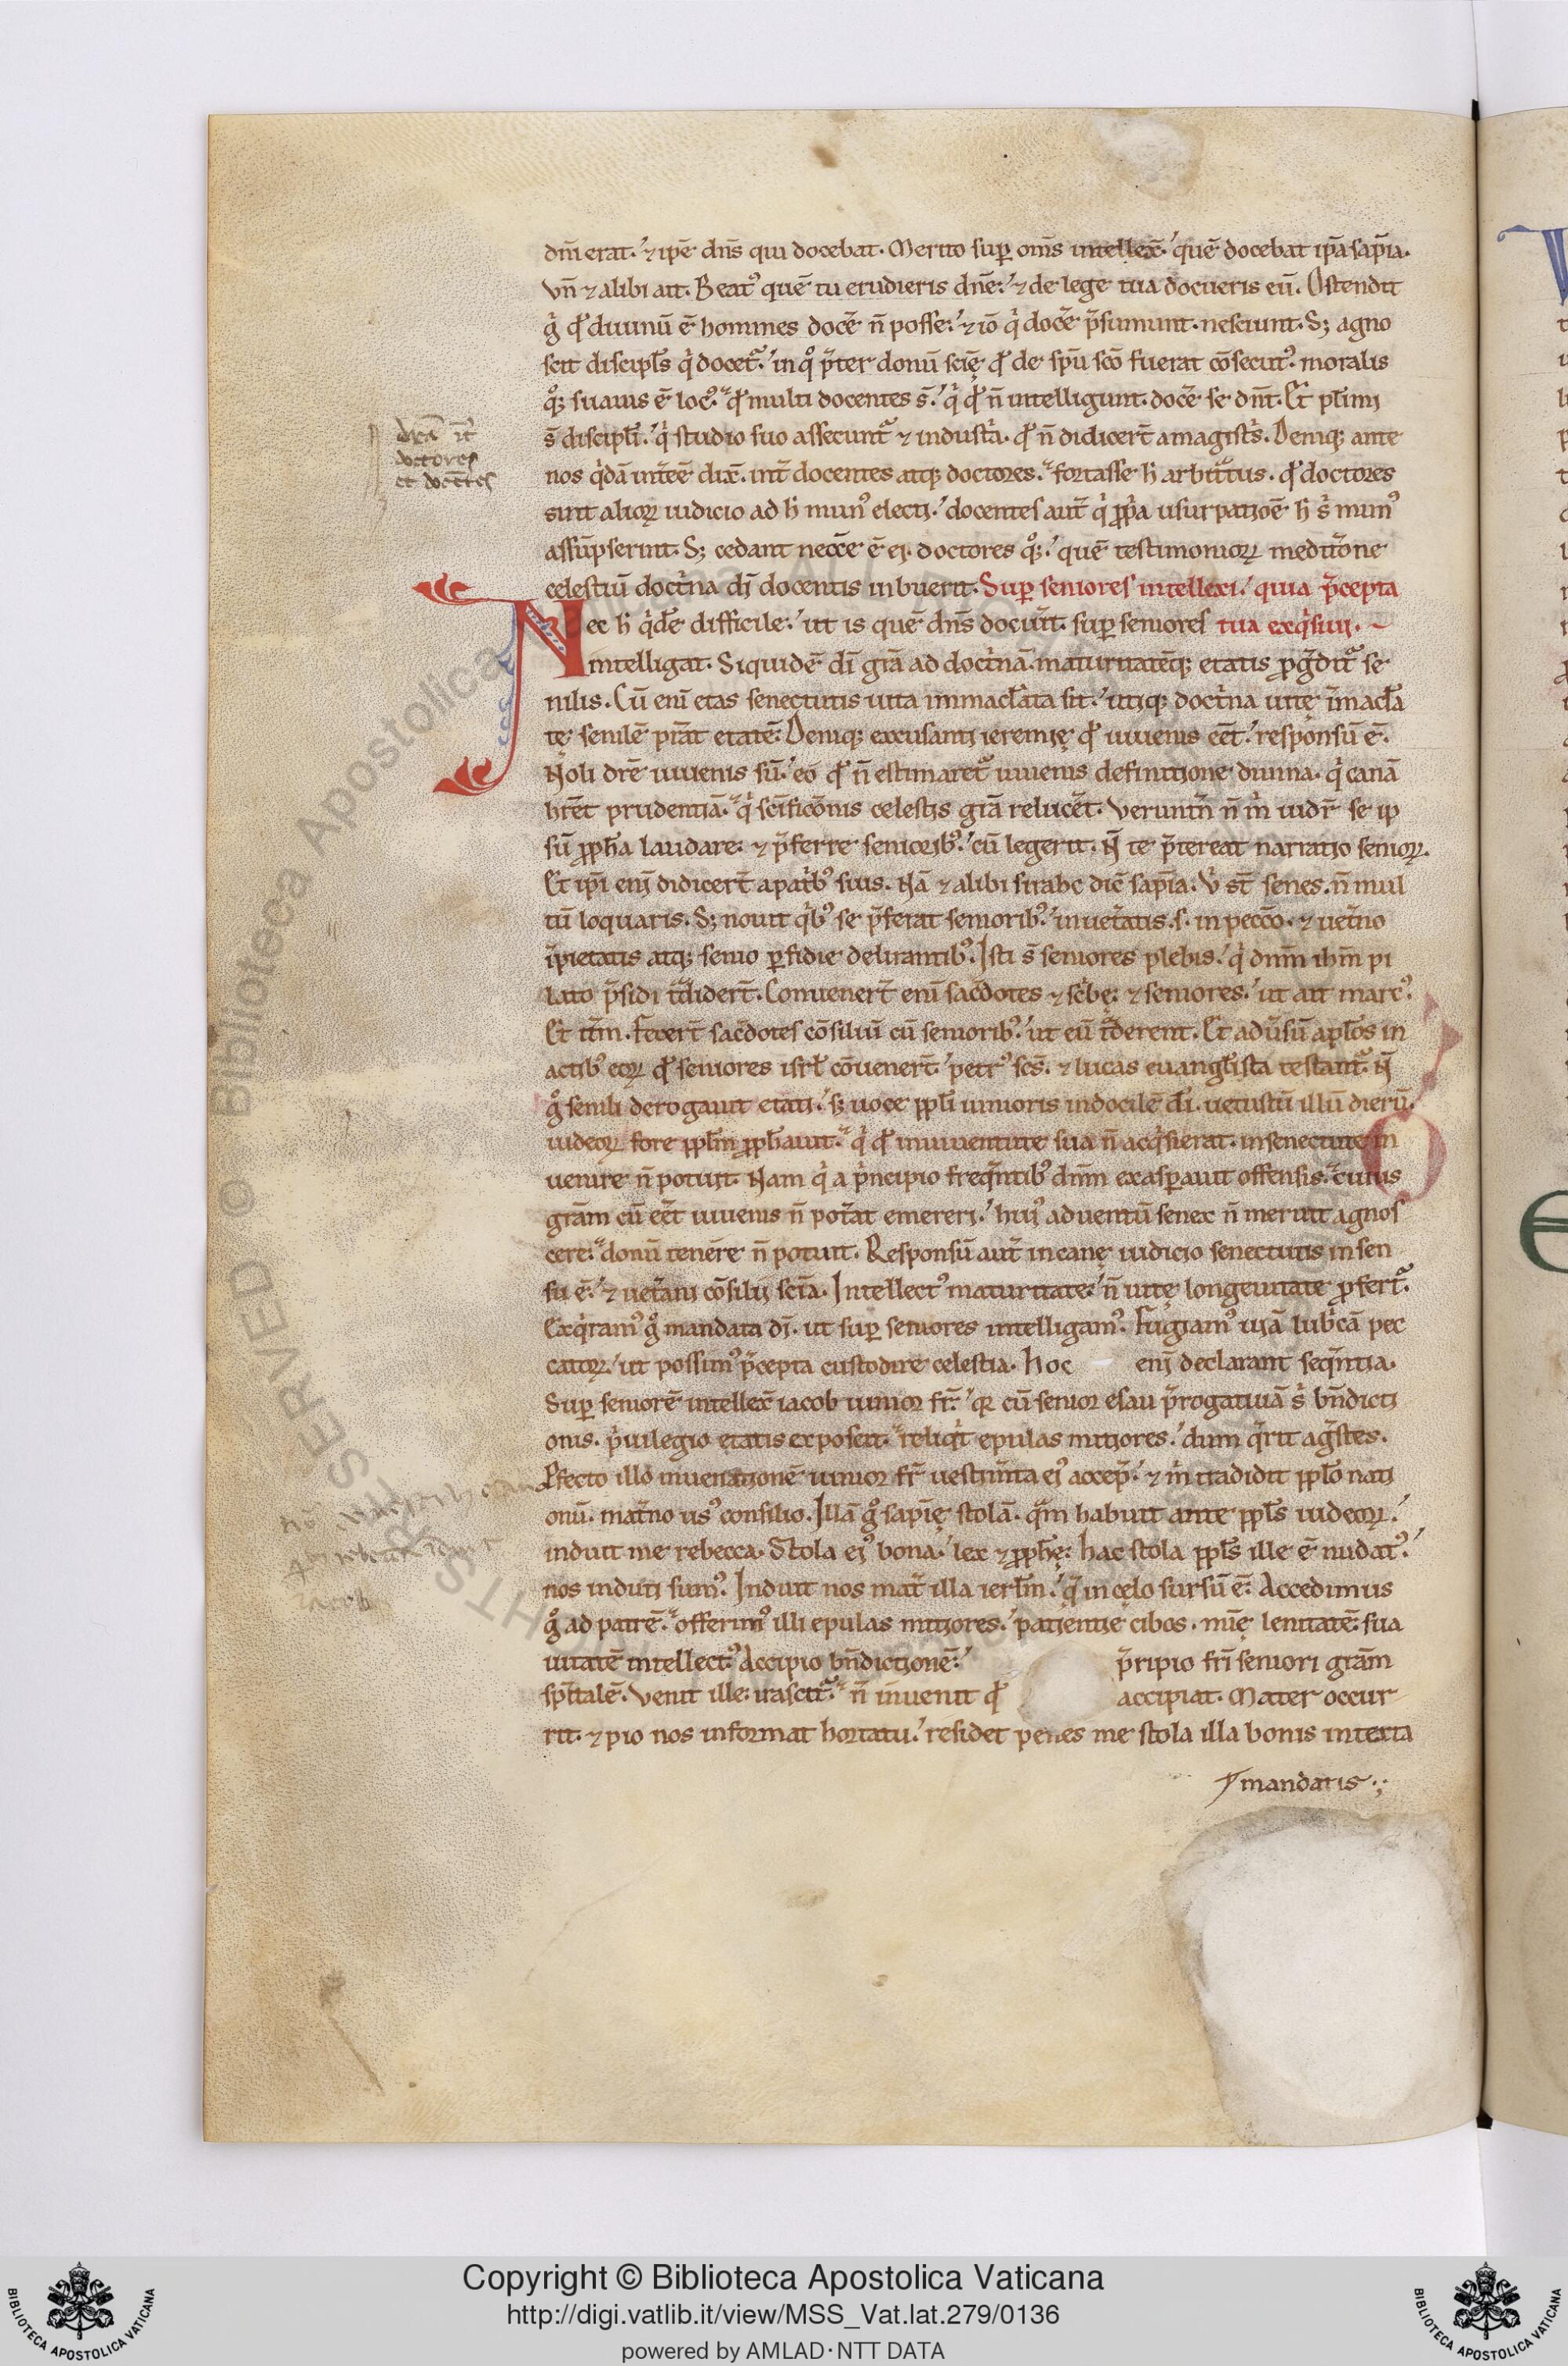 dm̄ erat. ⁊ ipē dn̄s qui docebat. Merito suꝑ om̄s intellex̄ quē docebat ip̄a sap̄ia.
vn̄ ⁊ alibi ait. Beatꝰ quē tu erudieris dn̄e. ⁊ de lege tua docueris eū. Ostendit
g̊ qđ diuinū ē homines docē n̄ posse. ⁊ iō qͥ docē p̄sumunt. nesciunt. Sꝫ agno
scit discipl̄s qͥ docet᷑. in qͦ p̄ter donū scię̄ qđ de spū scō fuerat cōsecutꝰ. moralis
qͦꝫ suauis ē locꝰ. qđ multi docentes s̄. qͥ qđ n̄ intelligunt. docē se dn̄t. Et pl̄imi
s̄ discipl̄i. qͥ studio suo assecunt᷑ ⁊ industͥa. qđ n̄ didicer̄t a magistͥs. Deniqꝫ ante
nos qͥdā int̄eē dix̄. int̄ docentes atqꝫ doctores. fortasse h̄ arbitͣtus. qđ doctores
sint alioꝝ iudicio ad h̄ munꝰ electi. docentes aut̄ qͥ ꝓpͥa usurpatiōē h̄ sͥ munꝰ
assūpserint. Sꝫ cedant neccē ē ei. doctores qͦꝫ. quē testimonioꝝ meditōne
celestiū doctͥna dī docentis inbuerit. Suꝑ seniores intellexi. quia p̄cepta
Nec h̄ qͥdē difficile. ut is quē dn̄s docuit. suꝑ seniores tua exqͥsiui.
intelligat. Siquidē dī grā ad doctͥnā. maturitatēqꝫ etatis ꝓgͣdit᷑ se
nilis. Cū eni etas senectutis uita immacl̄ata sit. utiqꝫ doctͥna uitę īmacl̄a
tę senilē pͣt etatē. Deniqꝫ excusanti ieremię qđ iuuenis eēt. responsū ē.
Noli dr̄e iuuenis sū. eo qđ n̄ estimaret᷑ iuuenis definitione diuina. qͥ canā
hr̄et prudentiā. qͥ sc̄ificōnis celestis grā relucēt. Veruntn̄ n̄ mͥ uidr̄ se ip
sū ꝓph̄a laudare. ⁊ p̄ferre senioribꝰ. cū legerit. N̄ te p̄tereat narratio senioꝝ.
Et ip̄i enī didicer̄t a patͥbꝰ suis. Nā ⁊ alibi sirahc dic̄ sap̄ia. Vͥ st̄ senes. n̄ mul
tū loquaris. Sꝫ nouit qͥbꝰ se p̄ferat senioribꝰ. inuet̄atis. s. in peccō. ⁊ uet̄no
īpietatis atqꝫ senio ꝑfidie deliͥantibꝰ. Isti s̄ seniores plebis. qͥ dnm̄ ihm̄ pi
lato p̄sidi tͣdidert̄. Conuenert̄ eni sac̄dotes ⁊ scͥbę. ⁊ seniores. ut ait marcꝰ.
Et it̄m. Fecert̄ sac̄dotes cōsiliū cū senioribꝰ. ut eū tͣderent. Et adūsū apl̄os in
actibꝰ eoꝝ qđ seniores isrl̄ cōuenert̄. petrꝰ scs̄. ⁊ lucas euangl̄ista testant᷑. N̄
gͦ senili derogauit etati. sꝫ uoce ppl̄i iunioris indocilē dī. uetustū illū dierū.
iudeoꝝ fore ppl̄m ꝓph̄auit. qͥ qđ in iuuentute sua n̄ acqͥsierat. in senectute in
uenire n̄ potuit. Nam qͥ a pͥncipio freqͣntibꝰ dnm̄ exasꝑauit offensis. cuius
grām cū eēt iuuenis n̄ potͣat emereri. huiꝰ aduentū senex n̄ meruit agnos
cere. donū tenēre n̄ potuit. Responsū aut̄ in cane̜ iudicio senectutis in sen
su ē. ⁊ uet̄ani cōsilii scīa. Intellectꝰ maturitate. n̄ uitę longeuitate ꝓfert᷑.
Exqͥramꝰ gͦ mandata dī. ut suꝑ seniores intelligamꝰ. Fugiamꝰ uiā lubͥcā pec
catoꝝ. ut possimꝰ p̄cepta custodire celestia. hoc enī declarant seqͣntia.
Suꝑ seniorē intellex̄ iacob iunior fr̄. qꝛ cū senior esau p̄rogatiuā sͥ bn̄dicti
onis. pͥuilegio etatis exposcit. reliqͥt epulas mitiores. dum qͣrit agͣstes.
Pfecto illo inuenationē iunior fr̄ uestim̄ta eiꝰ accep̄. ⁊ mͥ tradidit ppl̄o nati
onū. mat̄no usꝰ consilio. Illā gͦ sapīę stolā. qͣm habuit ante ppl̄s iudeoꝝ.
induit me rebecca. Stola eiꝰ bona. lex ⁊ ꝓph̄ę. hac stola ppl̄s ille ē nudatꝰ.
nos induti sumꝰ. Induit nos mat̄ illa ierl̄m. qͣ in cęlo sursū ē. Accedimus
gͦ ad patrē. offerimꝰ illi epulas mitiores. patientię cibos. mīę lenitatē. sua
uitatē intellectꝰ. Accipio bn̄dictionē. p̄ripio frī seniori grām
sp̄italē. Venit ille. irascit᷑. n̄ inuenit qđ accipiat. Mater occur
rit. ⁊ pio nos informat hortatu. residet penes me stola illa bonis intexta
mandatis.
dr̄ā it̄
doctores
et docētes
Copyright © Biblioteca Apostolica Vaticana
http://digi.vatlib.it/view/MSS_Vat.lat.279/0136
powered by AMLAD·NTT DATA
BIBLIOTECA APOSTOLICA VATICANA
BIBLIOTECA APOSTOLICA VATICANA